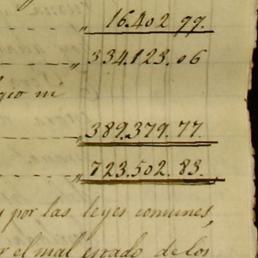 „ 16.402 97.
„ 334.123.06
gio ni
„ 389.379.77.
„ 723.502.83.
y por las leyes comunes,
r el mal grado de los